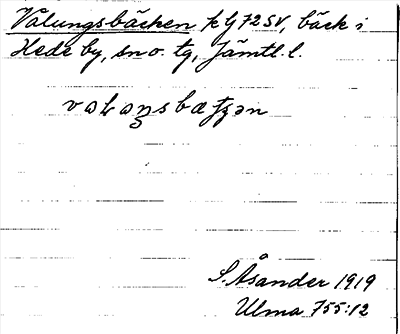 Valungsbäcken k G 72 SV, bäck i
Hede by, sn o. tg, Jämtl. l.
S. Åsander 1919
Ulma 755:12